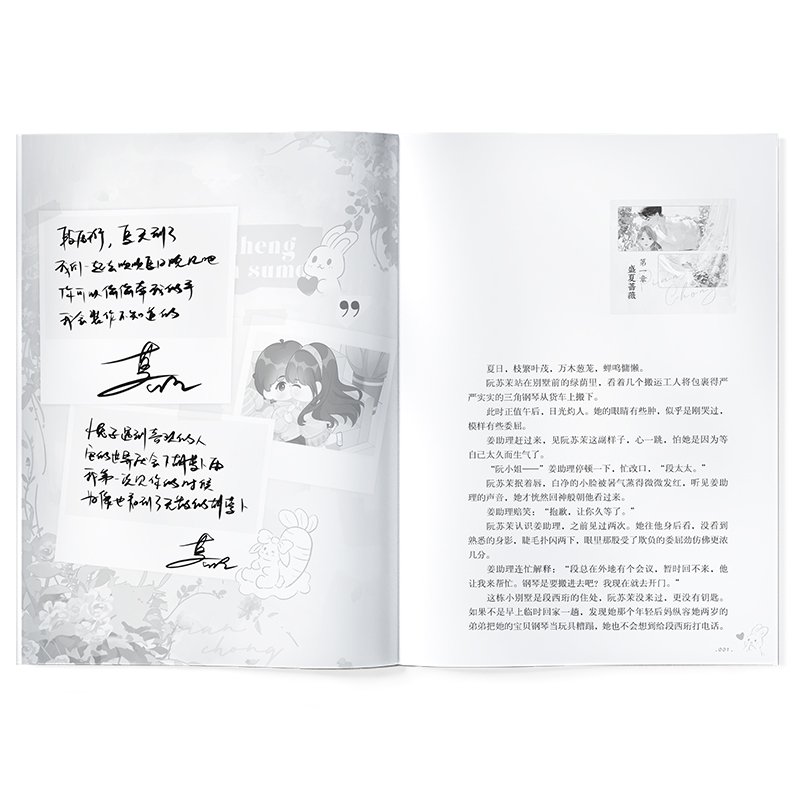 段西珩，夏天到了
我们一起去吹吹夏日晚风吧
你可以偷偷牵我的手
我会装作不知道的
兔子遇到喜欢的人
它的世界就会下胡萝卜雨
我第一次见你的时候
好像也看到了无数的胡萝卜
heng
sume
chong
第一章
盛夏蔷薇
Chong
夏日，枝繁叶茂，万木葱茏，蝉鸣慵懒。
阮苏茉站在别墅前的绿荫里，看着几个搬运工人将包裹得严
严实实的三角钢琴从货车上搬下。
此时正值午后，日光灼人。她的眼睛有些肿，似乎是刚哭过，
模样有些委屈。
姜助理赶过来，见阮苏茉这副样子，心一跳，怕她是因为等
自己太久而生气了。
“阮小姐——”姜助理停顿一下，忙改口，“段太太。”
阮苏茉抿着唇，白净的小脸被暑气蒸得微微发红，听见姜助
理的声音，她才恍然回神般朝他看过来。
姜助理赔笑：“抱歉，让你久等了。”
阮苏茉认识姜助理，之前见过两次。她往他身后看，没看到
熟悉的身影，睫毛扑闪两下，眼里那股受了欺负的委屈劲仿佛更浓
几分。
姜助理连忙解释：“段总在外地有个会议，暂时回不来，他
让我来帮忙。钢琴是要搬进去吧？我现在就去开门。”
这栋小别墅是段西珩的住处，阮苏茉没来过，更没有钥匙。
如果不是早上临时回家一趟，发现她那个年轻后妈纵容她两岁的
弟弟把她的宝贝钢琴当玩具糟蹋，她也不会想到给段西珩打电话。
.001.